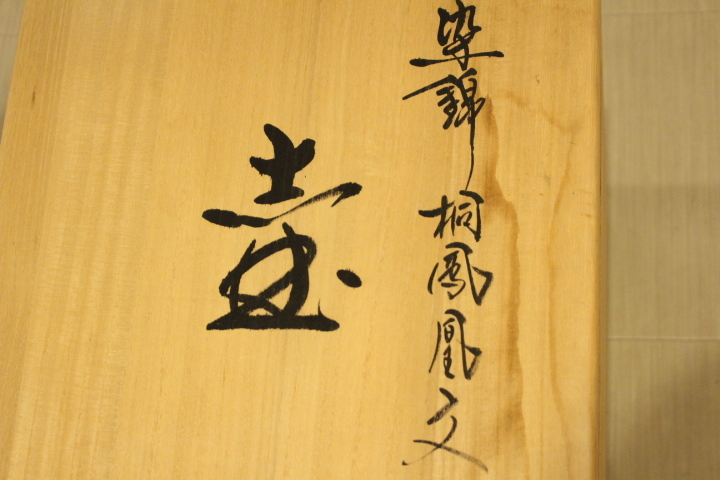 染錦 桐鳳凰文
壷